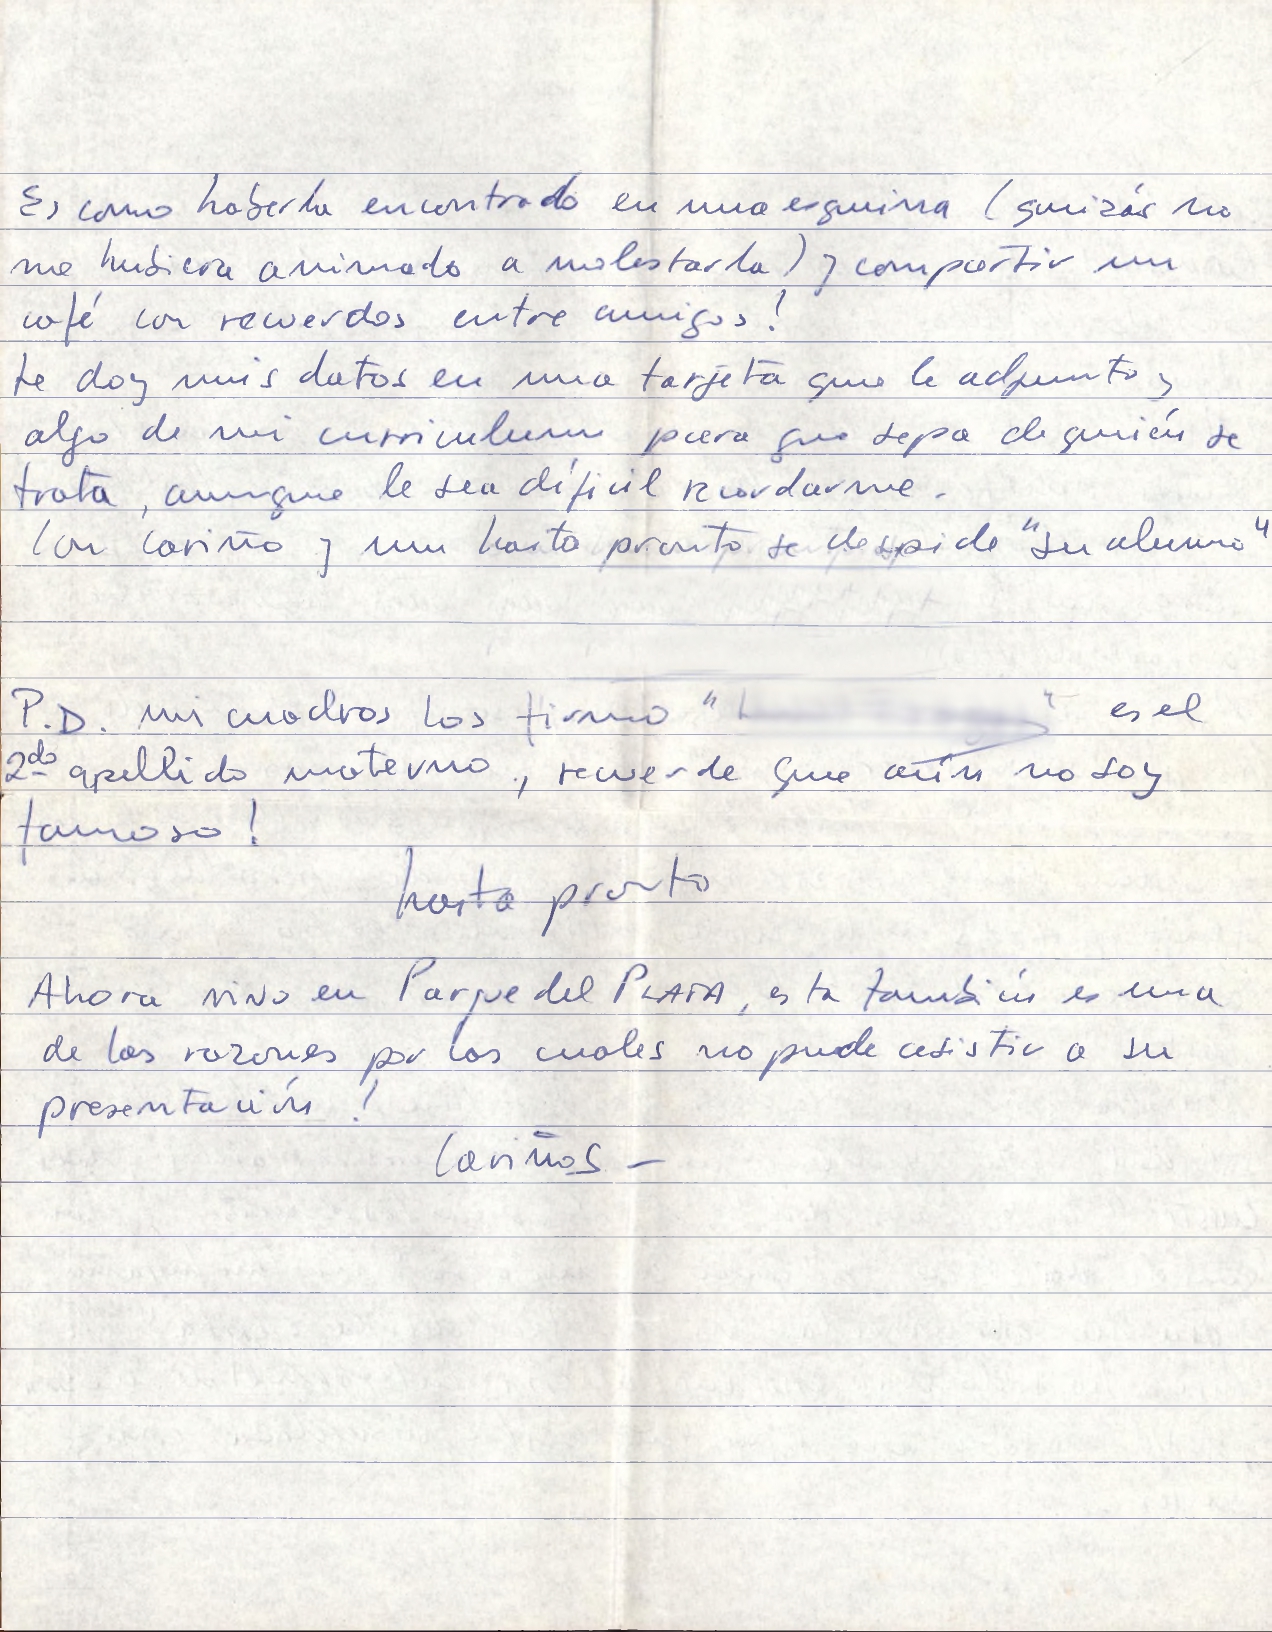 Es como haberla encontrado en una esquina (quizás no
me hubiera animado a molestarla) y compartir un
café con recuerdos entre amigos!
Le doy mis datos en una tarjeta que le adjunto y
algo de mi curriculum para que sepa de quién se
trata, aunque le sea difícil recordarme.
Con cariño y un hasta pronto se despide "su alumno"
P.D. mi cuadros los firmo " " es el
2do apellido materno, recuerde que aún no soy
famoso!
hasta pronto
Ahora vivo en Parque del PLATA, esta también es una
de las razones por las cuales no pude asistir a su
presentación!
Cariños -